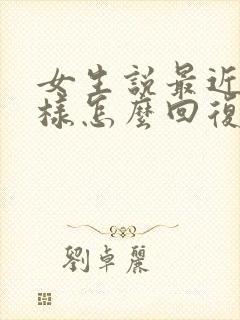 女生說最近
樣怎麼回復
劉卓麗